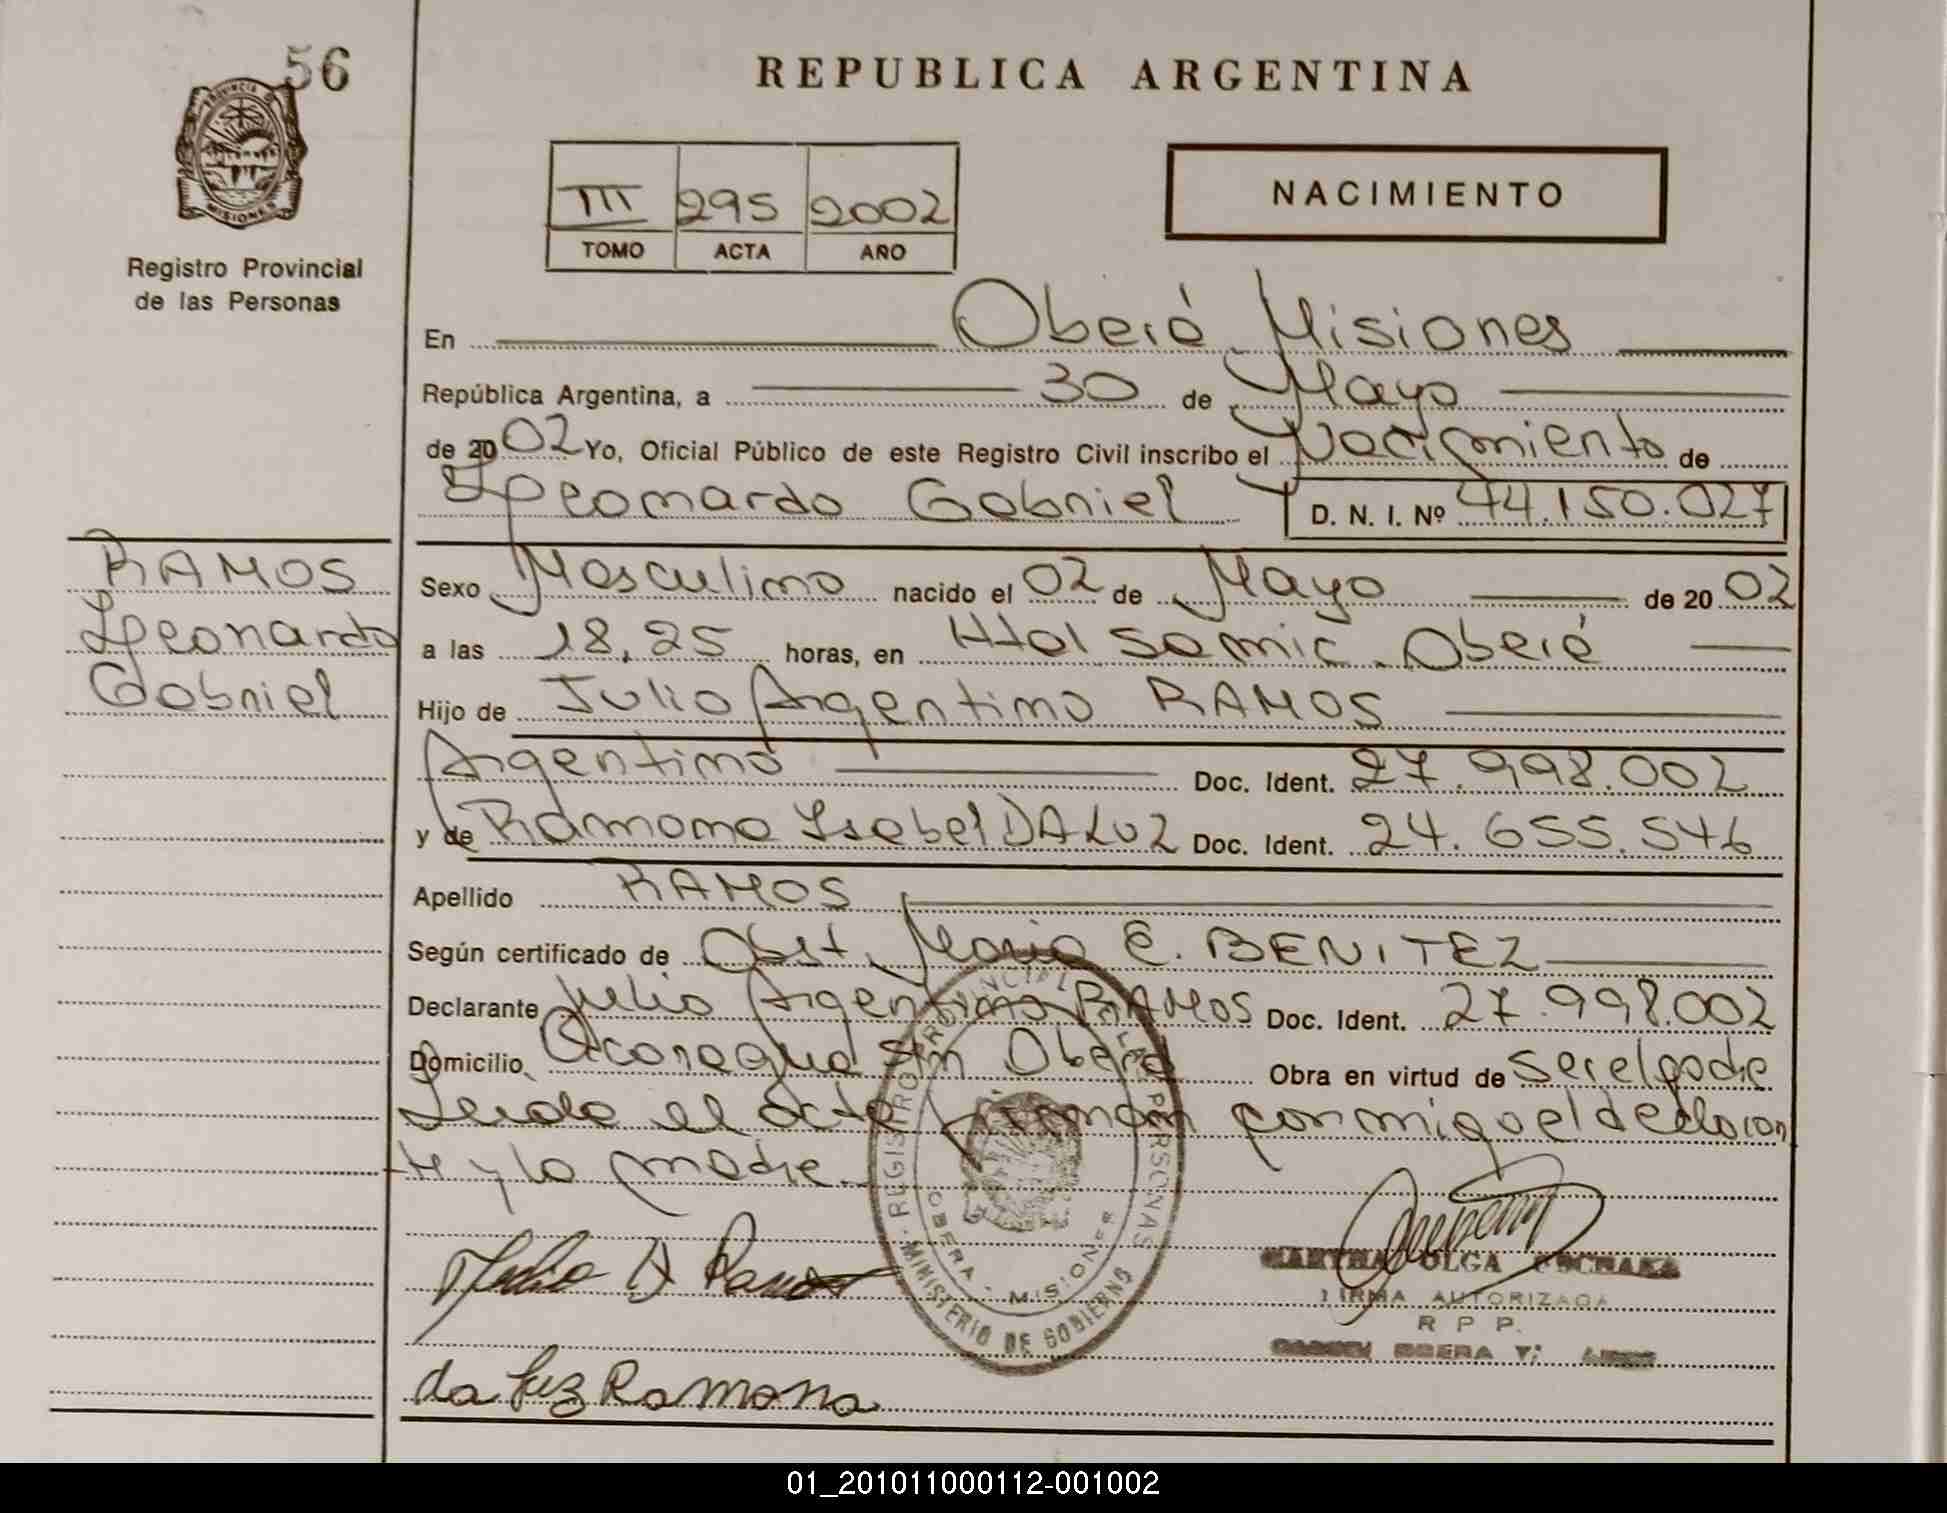 56
REPUBLICA ARGENTINA
PROVINCIA DE
MISIONES
Registro Provincial
de las Personas
III 295 2002
TOMO ACTA AÑO
NACIMIENTO
En Oberá Misiones
República Argentina, a 30 de Mayo
de 2002 Yo, Oficial Público de este Registro Civil inscribo el Nacimiento de
Leonardo Gabriel D. N. I. Nº 44.150.027
RAMOS
Leonardo
Gabriel
Sexo Masculino nacido el 02 de Mayo de 2002
a las 18,25 horas, en Htal Samic Oberá
Hijo de Julio Argentino RAMOS
Argentino Doc. Ident. 27.998.002
y de Ramona Isabel DA LUZ Doc. Ident. 24.655.546
Apellido RAMOS
Según certificado de Obst. Maria E. BENITEZ
Declarante Julio Argentino RAMOS Doc. Ident. 27.998.002
Domicilio Aconcagua s/n Oberá Obra en virtud de ser el padre
Leida el acta firman conmigo el declaran
te y la madre.
REGISTRO PROVINCIAL DE LAS PERSONAS
OBERA - MISIONES
MINISTERIO DE GOBIERNO
Julio A Ramos
MARTHA OLGA
FIRMA AUTORIZADA
R P P.
da Luz Ramona
01_201011000112-001002